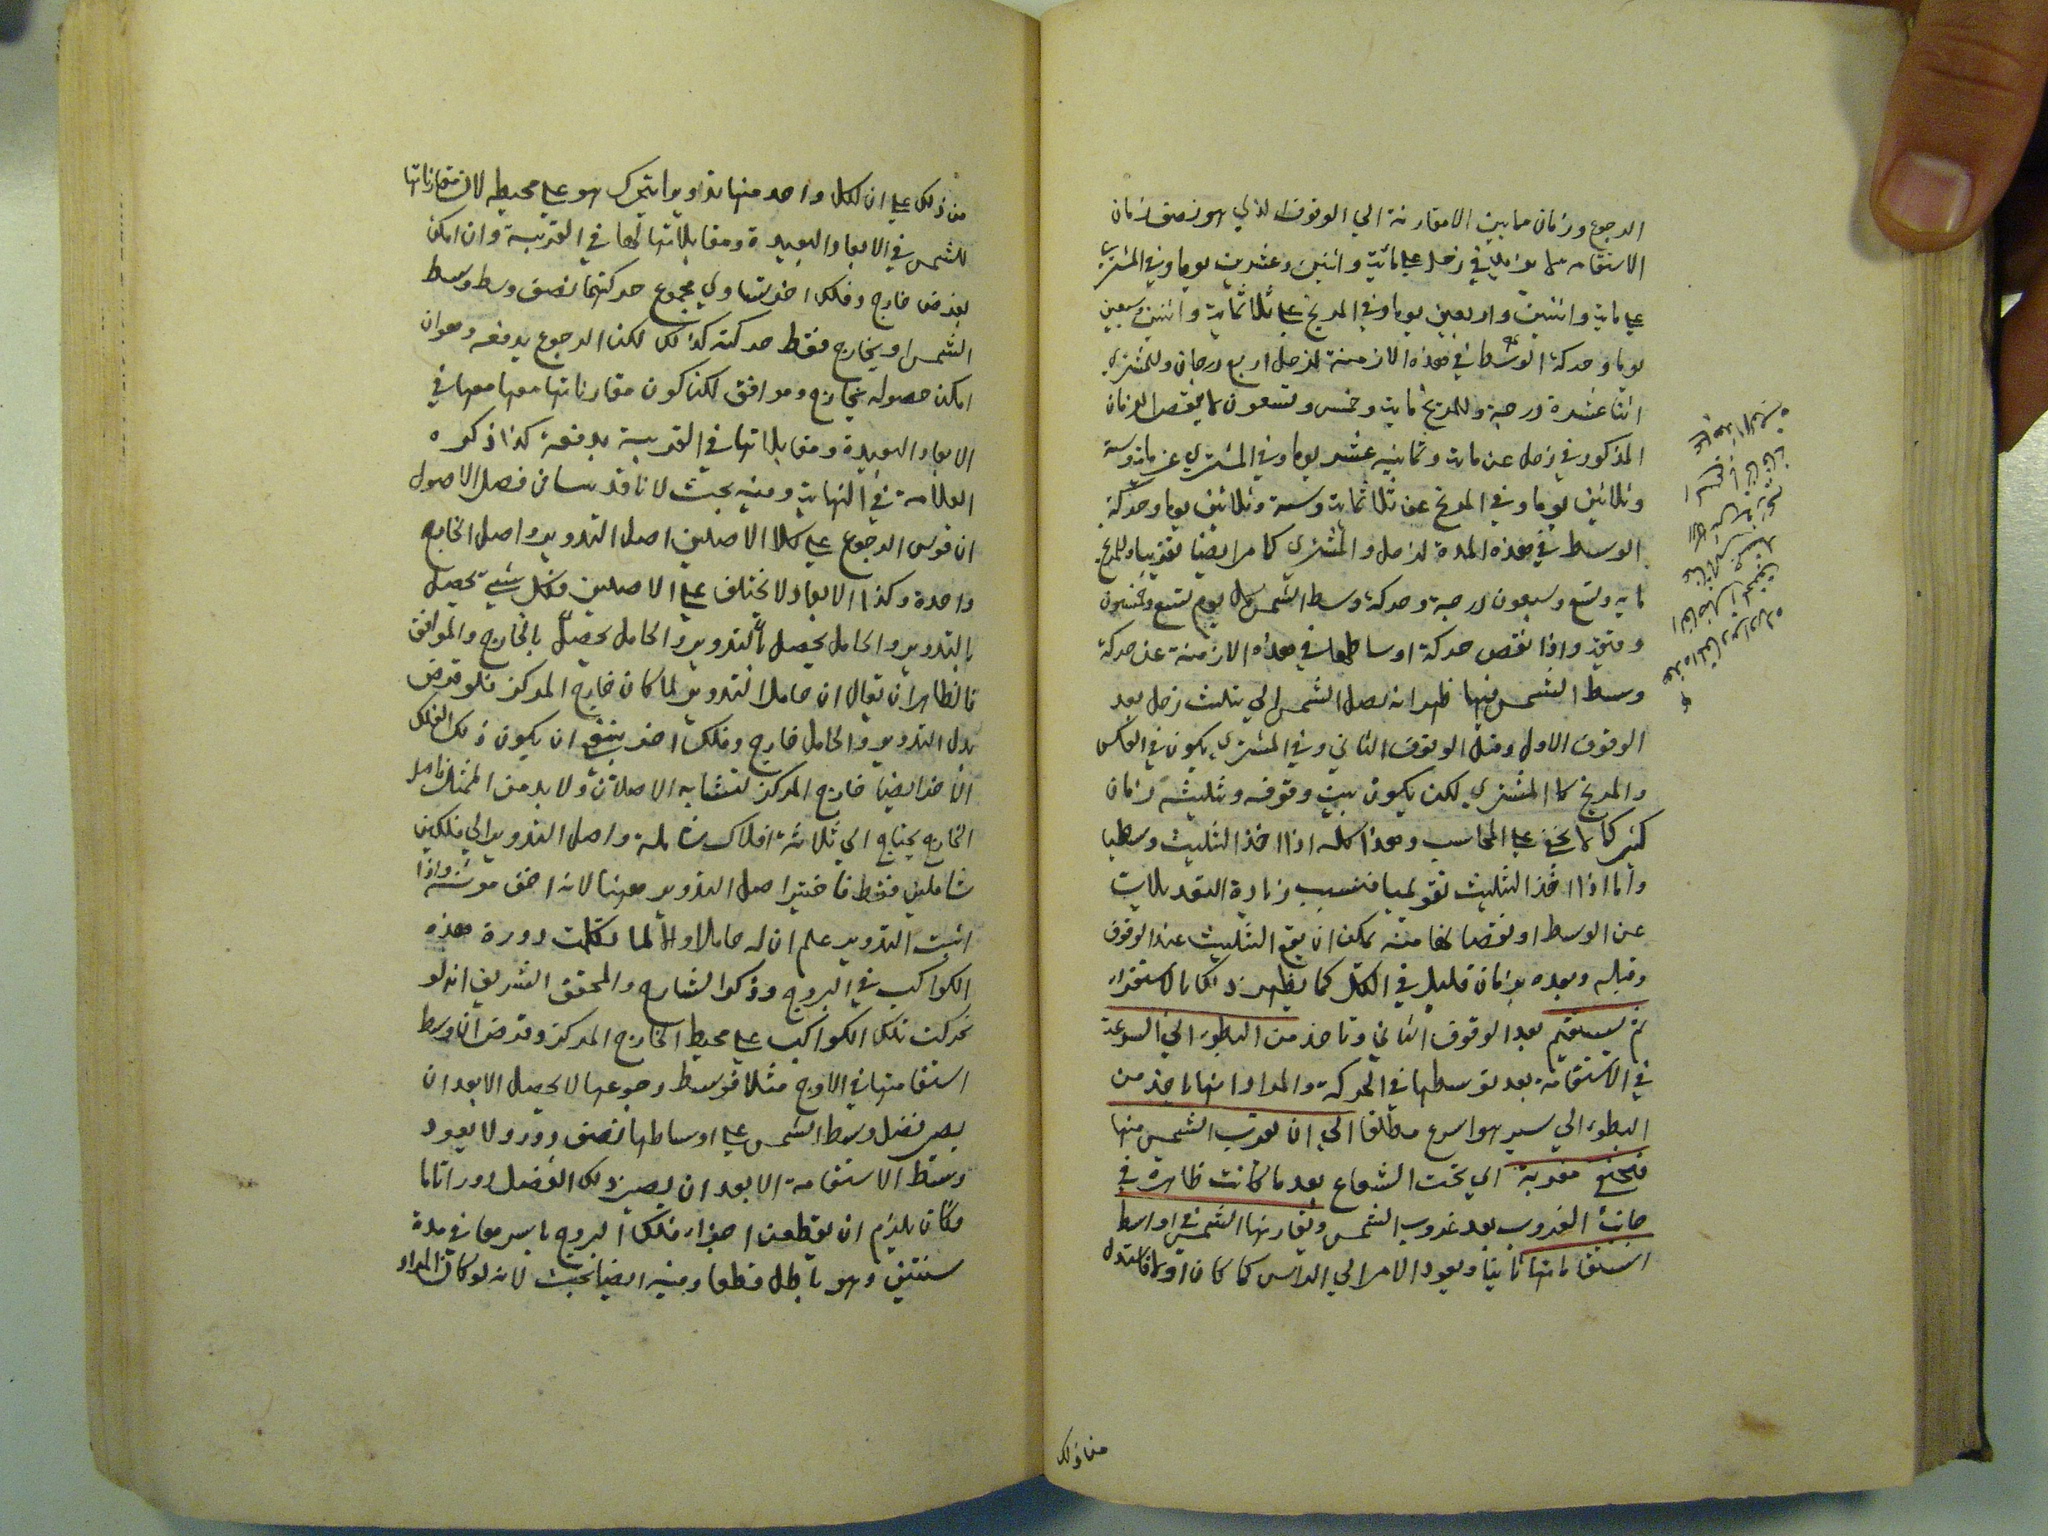 الرجوع وزمان ما بين الامقارنة الي الوقوف الذي هو نصف زمان
الاستقامه مما يزايد في زحل علي مائة واثنين وعشرين يوما وفي المشتري
علي مائة واثنين واربعين يوما وفي المريخ علي ثلاثمائة واثنين وسبعين
يوما وحركة الوسط في هذه الازمنة لزحل اربع درجات وللمشتري
اثنا عشرة درجة وللمريخ مائة وخمس وتسعون لا ينقص الزمان
المذكور في زحل عن مائة وثمانيه عشر يوما وفي المشتري عن مائة وستة
وثلاثين يوما وفي المريخ عن ثلاثمائة وستة وثلاثين يوما وحركة
الوسط في هذه المدة لزحل والمشتري كما مر ايضا تقريبا وللمريخ
مايه وتسع وسبعون درجة وحركة وسط الشمس كل يوم تسع وخمسون
دقيقة واذا نقص حركة اوساطها في هذه الازمنة عن حركة
وسط الشمس فيها ظهر انه يصل الشمس الي تثليث زحل بعد
الوقوف الاول وقبل الوقوف الثاني وفي المشتري يكون في العكس
والمريخ كالمشتري لكن يكون بين وقوفه وتثليثه زمان
كثير كما لا يخفي علي المحاسب وهذا كله اذا اخذ التثليث وسطيا
واما اذا اخذ التثليث تقويميا فبسبب زيادة التعديلات
عن الوسط او نقصانها منه يمكن ان يقع التثليث عند الوقوف
وقبله وبعده بزمان قليل في الكل كما يظهر ذلك بالاستقراء
ثم يستقيم بعد الوقوف الثاني وتاخذ من البطوء الي السرعة
في الاستقامة بعد توسطها في الحركة والمراد انها تاخذ من
البطوء الي سير هو اسرع مطلقا الي ان يقرب الشمس منها
فتختفي مغربة اي تحت الشعاع بعد ما كانت ظاهرة في
جانب الغروب بعد غروب الشمس ويقارنها الشمس في اواسط
استقاماتها ثانيا ويعود الامر الي الراس كما كان اولا فاستدل
من ذلك
من ذلك علي ان لكل واحد منها تداوير ايتحرك هو علي محيطه لان مقارناتها
للشمس في الابعاد البعيدة ومقابلاتها لها في القريبة وان امكن
بفرض خارج وفلك اخر يتساوي مجموع حركتهما نصف وسط وسط
الشمس او بخارج فقط حركته كذلك لكن الرجوع يدفعه وهو ان
امكن حصوله بخارج وموافق لكن كون مقارناتها معها في
الابعاد البعيدة ومقابلاتها في القريبة يدفعه كذا ذكره
العلامة في النهاية وفيه بحث لانا قد بينا في فصل الاصول
ان قوس الرجوع علي كلا الاصلين اصل التدوير واصل الخارج
واحدة وكذا الابعاد لا يختلف علي الاصلين فكل شي يحصل
بالتدوير والحامل يحصل بالتدوير والحامل يحصل بالخارج والموافق
فالظاهر ان يقال ان حامل التدوير لما كان خارج المركز فلو فرض
بدل التدوير والحامل خارج وفلك اخر ينبغي ان يكون ذلك الفلك
الاخر ايضا خارج المركز لتشابه الاصلان ولا بد من الممثل فاصل
الخارج يحتاج الي ثلاثة افلاك شاملة واصل التدوير الي فلكين
شاملين فقط فاختير اصل التدوير ههنا لانه اخف مونته واذا
اثبت التدوير علم ان له حاملا والا لما تكلمت دورة هذه
الكواكب في البروج وذكر الشارح والمحقق الشريف انه لو
تحركت تلك الكواكب علي محيط الخارج المركز وفرض ان وسط
استقامتها في الاوج مثلا فوسط رجوعها لا يحصل الا بعد ان
يصير فضل وسط الشمس علي اوساطها نصف دور ولا يعود
وسط الاستقامة الا بعد ان يصير ذلك الفضل دورا تاما
فكان يلزم ان يقطعن اجزاء فلك البروج باسرها في مدة
سنتين وهو باطل قطعا وفيه ايضا بحث لانه لو كان المراد